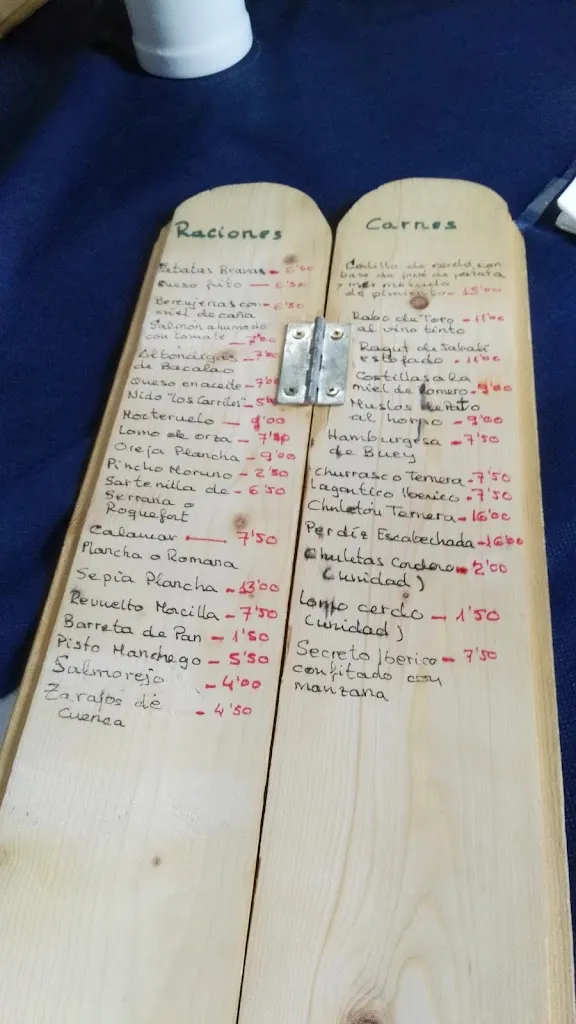 Raciones
Patatas Bravas - 6'50
Queso frito - 6'50
Berenjenas con - 6'50
miel de caña
Salmon ahumado
con tomate - 7'00
Albondigas - 7'00
de Bacalao
Queso en aceite - 7'00
Nido "los Carriles" -
Morteruelo - 9'00
Lomo de orza - 7'50
Oreja Plancha - 9'00
Pincho Moruno - 2'50
Sartenilla de - 6'50
Serrano o
Roquefort
Calamar - 7'50
Plancha o Romana
Sepia Plancha - 13'00
Revuelto Morcilla - 7'50
Barreta de Pan - 1'50
Pisto Manchego - 5'50
Salmorejo - 4'00
Zarajos de - 4'50
Cuenca
Carnes
Codillo de cerdo con
base de puré de patata
y
de pimiento - 15'00
Rabo de Toro - 11'00
al vino tinto
Ragut de Jabali
estofado - 11'00
Costillas a la
miel de Romero - 9'00
Muslos de Pato
al horno - 9'00
Hamburgesa - 7'50
de Buey
Churrasco Ternera - 7'50
Lagartico Iberico - 7'50
Chuletón Ternera - 16'00
Perdiz Escabechada - 16'00
Chuletas Cordero - 2'00
(unidad)
Lomo cerdo - 1'50
(unidad)
Secreto Iberico - 7'50
confitado con
manzana